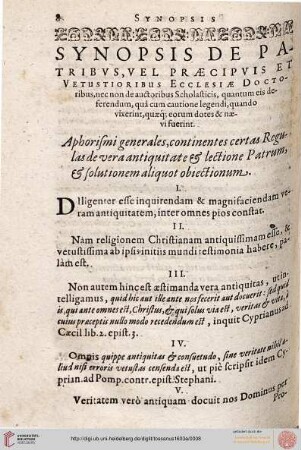 8 SYNOPSIS
SYNOPSIS DE PA-
TRIBVS, VEL PRÆCIPVIS ET
VETUSTIORIBUS ECCLESIÆ DOCTO-
ribus, nec non de auctoribus Scholasticis, quantum eis de-
ferendum, quâ cum cautione legendi, quando
vixerint, quæq; eorum dotes & næ-
vi fuerint.
Aphorismi generales, continentes certas Regu-
las de vera antiquitate & lectione Patrum,
& solutionem aliquot obiectionum.
I.
DIligenter esse inquirendam & magnifaciendam ve-
ram antiquitatem, inter omnes pios constat.
II.
Nam religionem Christianam antiquissimam esse, &
vetustissima ab ipsis initiis mundi testimonia habere, pa-
làm est.
III.
Non autem hinc est æstimanda vera antiquitas, ut in-
telligamus, quid hic aut ille ante nos fecerit aut docuerit: sed quid
is, qui ante omnes est, Christus, & qui solus via est, veritas & vita, à
cuius præceptis nullo modo recedendum est, inquit Cyprianus ad
Cæcil lib. 2. epist. 3.
IV.
Omnis quippe antiquitas & consuetudo, sine veritate nihil a-
liud nisi erroris vetustas censenda est, ut piè scripsit idem Cy-
prian. ad Pomp. contr. epist: Stephani.
V.
Veritatem verò antiquam docuit nos Dominus per
Pro-
http://digi.ub.uni-heidelberg.de/diglit/tossanus1603a/0008